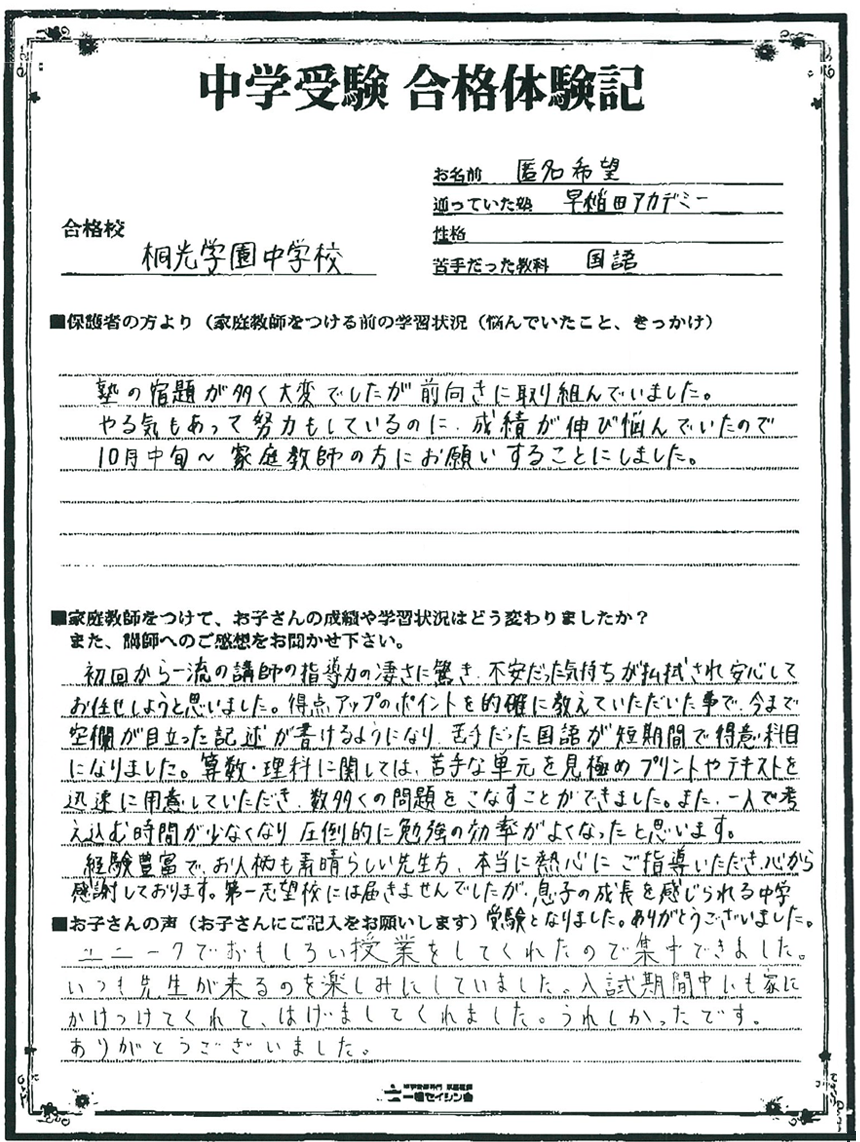 中学受験 合格体験記
お名前 匿名希望
通っていた塾 早稲田アカデミー
合格校
性格
桐光学園中学校
苦手だった教科 国語
■保護者の方より（家庭教師をつける前の学習状況（悩んでいたこと、きっかけ）
塾の宿題が多く大変でしたが前向きに取り組んでいました。
やる気もあって努力もしているのに、成績が伸び悩んでいたので
10月中旬〜家庭教師の方にお願いすることにしました。
■家庭教師をつけて、お子さんの成績や学習状況はどう変わりましたか？
また、講師へのご感想をお聞かせ下さい。
初回から一流の講師の指導力の凄さに驚き、不安だった気持ちが払拭され安心して
お任せしようと思いました。得点アップのポイントを的確に教えていただいた事で、今まで
空欄が目立った記述が書けるようになり、苦手だった国語が短期間で得意科目
になりました。算数・理科に関しては、苦手な単元を見極めプリントやテキストを
迅速に用意していただき、数多くの問題をこなすことができました。また、一人で考
え込む時間が少なくなり圧倒的に勉強の効率がよくなったと思います。
経験豊富で、お人柄も素晴らしい先生方、本当に熱心にご指導いただき、心から
感謝しております。第一志望校には届きませんでしたが、息子の成長を感じられる中学
受験となりました。ありがとうございました。
■お子さんの声（お子さんにご記入をお願いします）
ユニークでおもしろい授業をしてくれたので集中できました。
いつも先生が来るのを楽しみにしていました。入試期間中にも家に
かけつけてくれて、はげましてくれました。うれしかったです。
ありがとうございました。
中学受験専門 家庭教師
一橋セイシン会